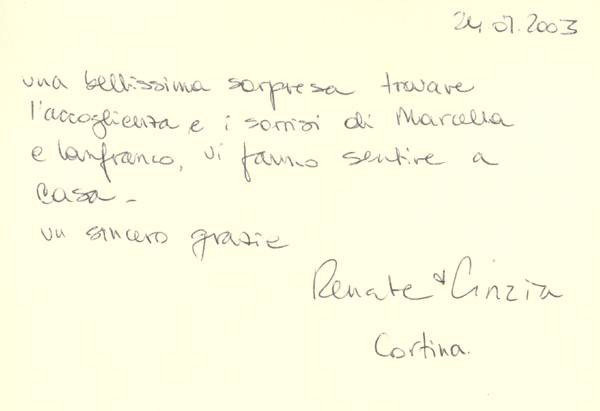 24.07.2003
una bellissima sorpresa trovare
l'accoglienza e i sorrisi di Marcella
e Lanfranco, vi fanno sentire a
casa -
un sincero grazie
Renate & Cinzia
Cortina.